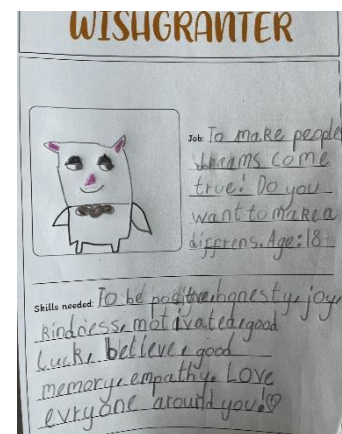 WISHGRANTER
Job: To make people
dreams come
true! Do you
want to make a
differens. Age: 18
Skills needed: To be positive, honesty, joy,
kindness, motivated, good
luck, belleve, good
memory, empathy, Love
evryone around you!